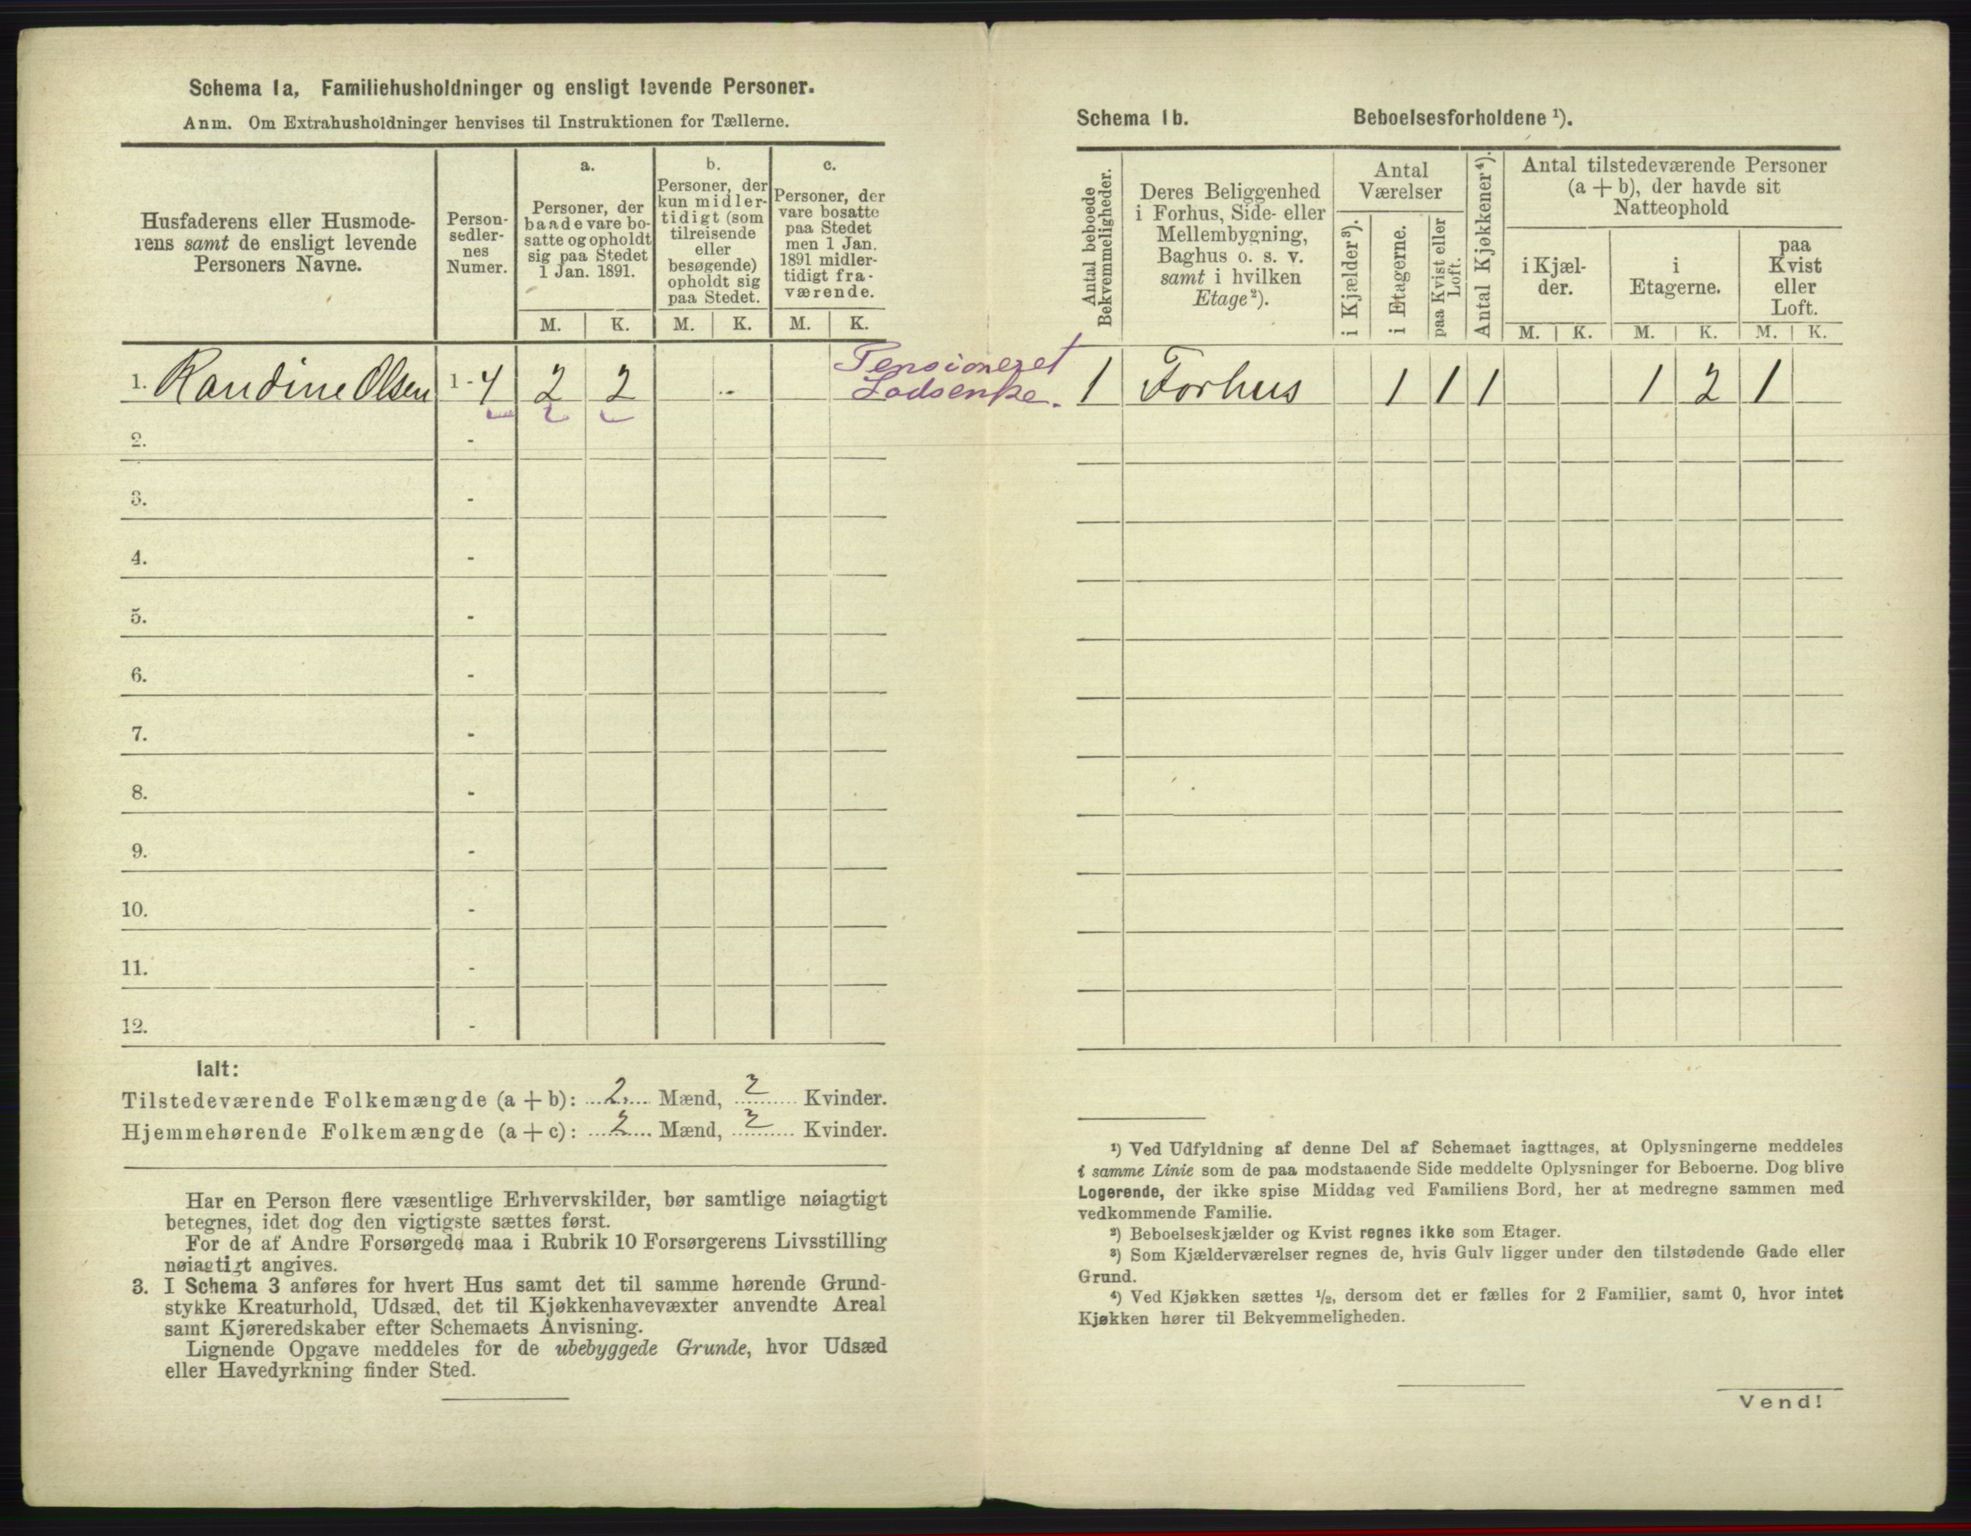 Schema 1a, Familiehusholdninger og ensligt levende Personer.
Anm. Om Extrahusholdninger henvises til Instruktionen for Tællerne.
Husfaderens eller Husmode-
rens samt de ensligt levende
Personers Navne.
Person-
sedler-
nes
Numer.
a.
Personer, der
baade vare bo-
satte og opholdt
sig paa Stedet
1 Jan. 1891.
b.
Personer, der
kun midler-
tidigt (som
tilreisende
eller
besøgende)
opholdt sig
paa Stedet.
c.
Personer, der
vare bosatte
paa Stedet
men 1 Jan.
1891 midler-
tidigt fra-
værende.
M. K. M. K. M. K.
1. Randine Olsen 1 - 4 2 2 Pensioneret
Lodsenke.
2. -
3. -
4. -
5. -
6. -
7. -
8. -
9. -
10. -
11. -
12. -
Ialt:
Tilstedeværende Folkemængde (a + b): 2 Mænd, 2 Kvinder.
Hjemmehørende Folkemængde (a + c): 2 Mænd, 2 Kvinder.
Har en Person flere væsentlige Erhvervskilder, bør samtlige nøiagtigt
betegnes, idet dog den vigtigste sættes først.
For de af Andre Forsørgede maa i Rubrik 10 Forsørgerens Livsstilling
nøiagtigt angives.
3. I Schema 3 anføres for hvert Hus samt det til samme hørende Grund-
stykke Kreaturhold, Udsæd, det til Kjøkkenhavevæxter anvendte Areal
samt Kjøreredskaber efter Schemaets Anvisning.
Lignende Opgave meddeles for de ubebyggede Grunde, hvor Udsæd
eller Havedyrkning finder Sted.
Schema 1b. Beboelsesforholdene ¹).
Antal beboede
Bekvemmeligheder.
Deres Beliggenhed
i Forhus, Side- eller
Mellembygning,
Baghus o. s. v.
samt i hvilken
Etage²).
Antal
Værelser
i Kjælder³).
i Etagerne.
paa Kvist eller
Loft.
Antal Kjøkkener⁴).
Antal tilstedeværende Personer
(a + b), der havde sit
Natteophold
i Kjæl-
der.
i
Etagerne.
paa
Kvist
eller
Loft.
M. K. M. K. M. K.
1 Forhus 1 1 1 1 2 1
¹) Ved Udfyldning af denne Del af Schemaet iagttages, at Oplysningerne meddeles
i samme Linie som de paa modstaaende Side meddelte Oplysninger for Beboerne. Dog blive
Logerende, der ikke spise Middag ved Familiens Bord, her at medregne sammen med
vedkommende Familie.
²) Beboelseskjælder og Kvist regnes ikke som Etager.
³) Som Kjælderværelser regnes de, hvis Gulv ligger under den tilstødende Gade eller
Grund.
⁴) Ved Kjøkken sættes ½, dersom det er fælles for 2 Familier, samt 0, hvor intet
Kjøkken hører til Bekvemmeligheden.
Vend!